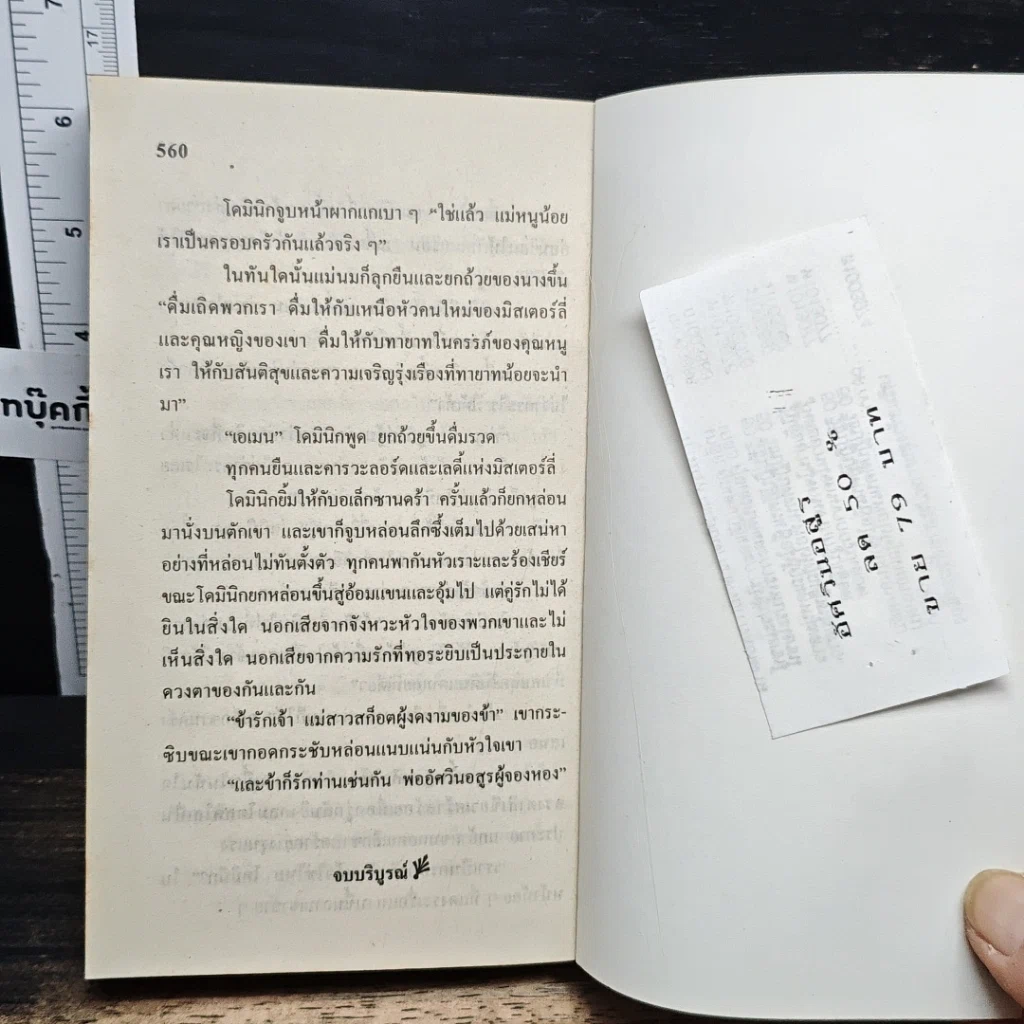 560
โดมินิกจูบหน้าผากแกเบา ๆ “ใช่แล้ว แม่หนูน้อย
เราเป็นครอบครัวกันแล้วจริง ๆ”
ในทันใดนั้นแม่นมก็ลุกยืนและยกถ้วยของนางขึ้น
“ดื่มเถิดพวกเรา ดื่มให้กับเหนือหัวคนใหม่ของมิสเตอร์ลี่
และคุณหญิงของเขา ดื่มให้กับทายาทในครรภ์ของคุณหนู
เรา ให้กับสันติสุขและความเจริญรุ่งเรืองที่ทายาทน้อยจะนำ
มา”
“เอเมน” โดมินิกพูด ยกถ้วยขึ้นดื่มรวด
ทุกคนยืนและคารวะลอร์ดและเลดี้แห่งมิสเตอร์ลี่
โดมินิกยิ้มให้กับอเล็กซานดร้า ครั้นแล้วก็ยกหล่อน
มานั่งบนตักเขา และเขาก็จูบหล่อนลึกซึ้งเต็มไปด้วยเสน่หา
อย่างที่หล่อนไม่ทันตั้งตัว ทุกคนพากันหัวเราะและร้องเชียร์
ขณะโดมินิกยกหล่อนขึ้นสู่อ้อมแขนและอุ้มไป แต่คู่รักไม่ได้
ยินในสิ่งใด นอกเสียจากจังหวะหัวใจของพวกเขาและไม่
เห็นสิ่งใด นอกเสียจากความรักที่ทอระยิบเป็นประกายใน
ดวงตาของกันและกัน
“ข้ารักเจ้า แม่สาวสก็อตผู้งดงามของข้า” เขากระ-
ซิบขณะเขากอดกระชับหล่อนแนบแน่นกับหัวใจเขา
“และข้าก็รักท่านเช่นกัน พ่ออัศวินอสูรผู้จองหอง”
จบบริบูรณ์
อัศวินอสูร
ลด 50 %
ขาย 79 บาท
6
5
4
7
17
ทบุ๊คกี้